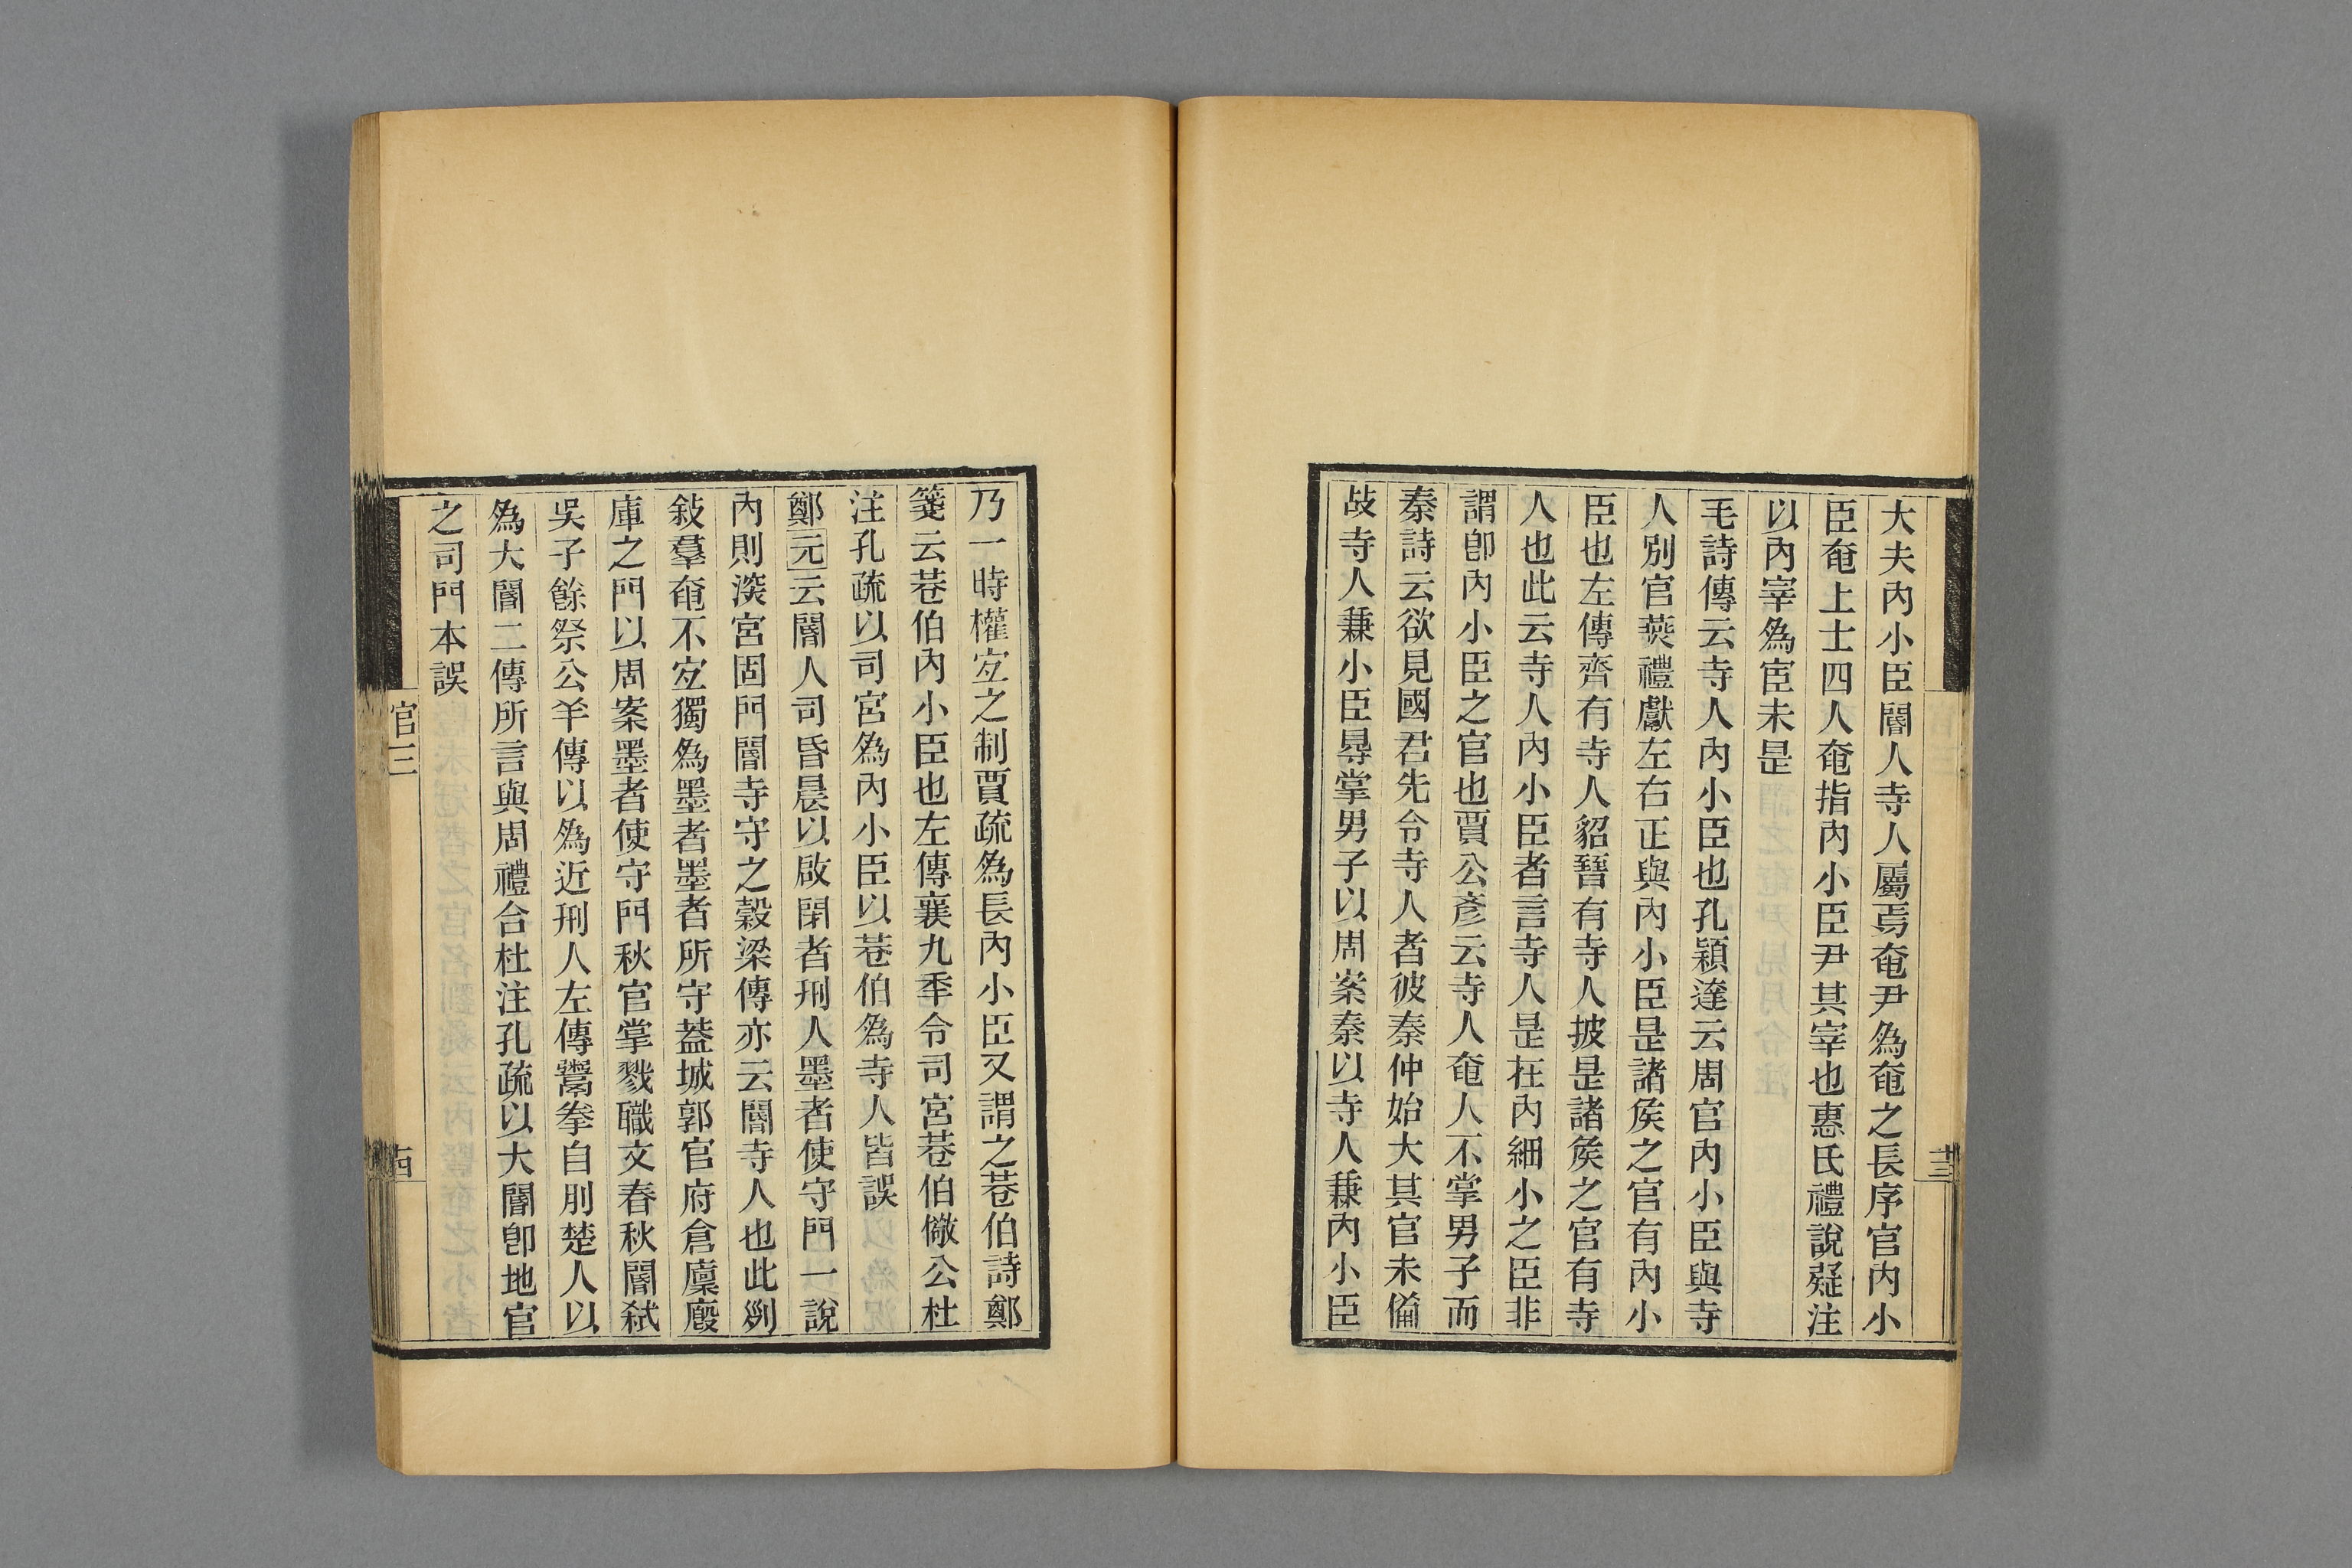 大夫內小臣閽人寺人屬焉奄尹為奄之長序官內小
臣奄上士四人奄指內小臣尹其宰也惠氏禮說疑注
以內宰為宦未是
毛詩傳云寺人內小臣也孔穎達云周官內小臣與寺
人別官燕禮獻左右正與內小臣是諸矦之官有內小
臣也左傳齊有寺人貂晉有寺人披是諸矦之官有寺
人也此云寺人內小臣者言寺人是在內細小之臣非
謂卽內小臣之官也賈公彥云寺人奄人不掌男子而
秦詩云欲見國君先令寺人者彼秦仲始大其官未僃
故寺人兼小臣尋掌男子以周案秦以寺人兼內小臣
十三
乃一時權宐之制賈疏為長內小臣又謂之巷伯詩鄭
箋云巷伯內小臣也左傳襄九秊令司宮巷伯儆公杜
注孔疏以司宮為內小臣以巷伯為寺人皆誤
鄭元云閽人司昏晨以啟閉者刑人墨者使守門一說
內則深宮固門閽寺守之穀梁傳亦云閽寺人也此列
敍羣奄不宐獨為墨者墨者所守葢城郭官府倉廩廏
庫之門以周案墨者使守門秋官掌戮職文春秋閽弒
吳子餘祭公羊傳以為近刑人左傳鬻拳自刖楚人以
為大閽二傳所言與周禮合杜注孔疏以大閽卽地官
之司門本誤
官三